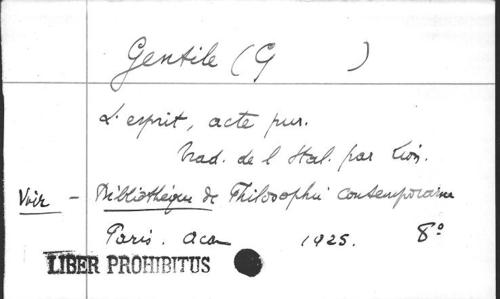 Gentile (G )
L'esprit, acte pur.
trad. de l'Ital. par Lion.
Voir - Bibliothèque de Philosophie contemporaine
Paris. Alcan 1925. 8°
LIBER PROHIBITUS